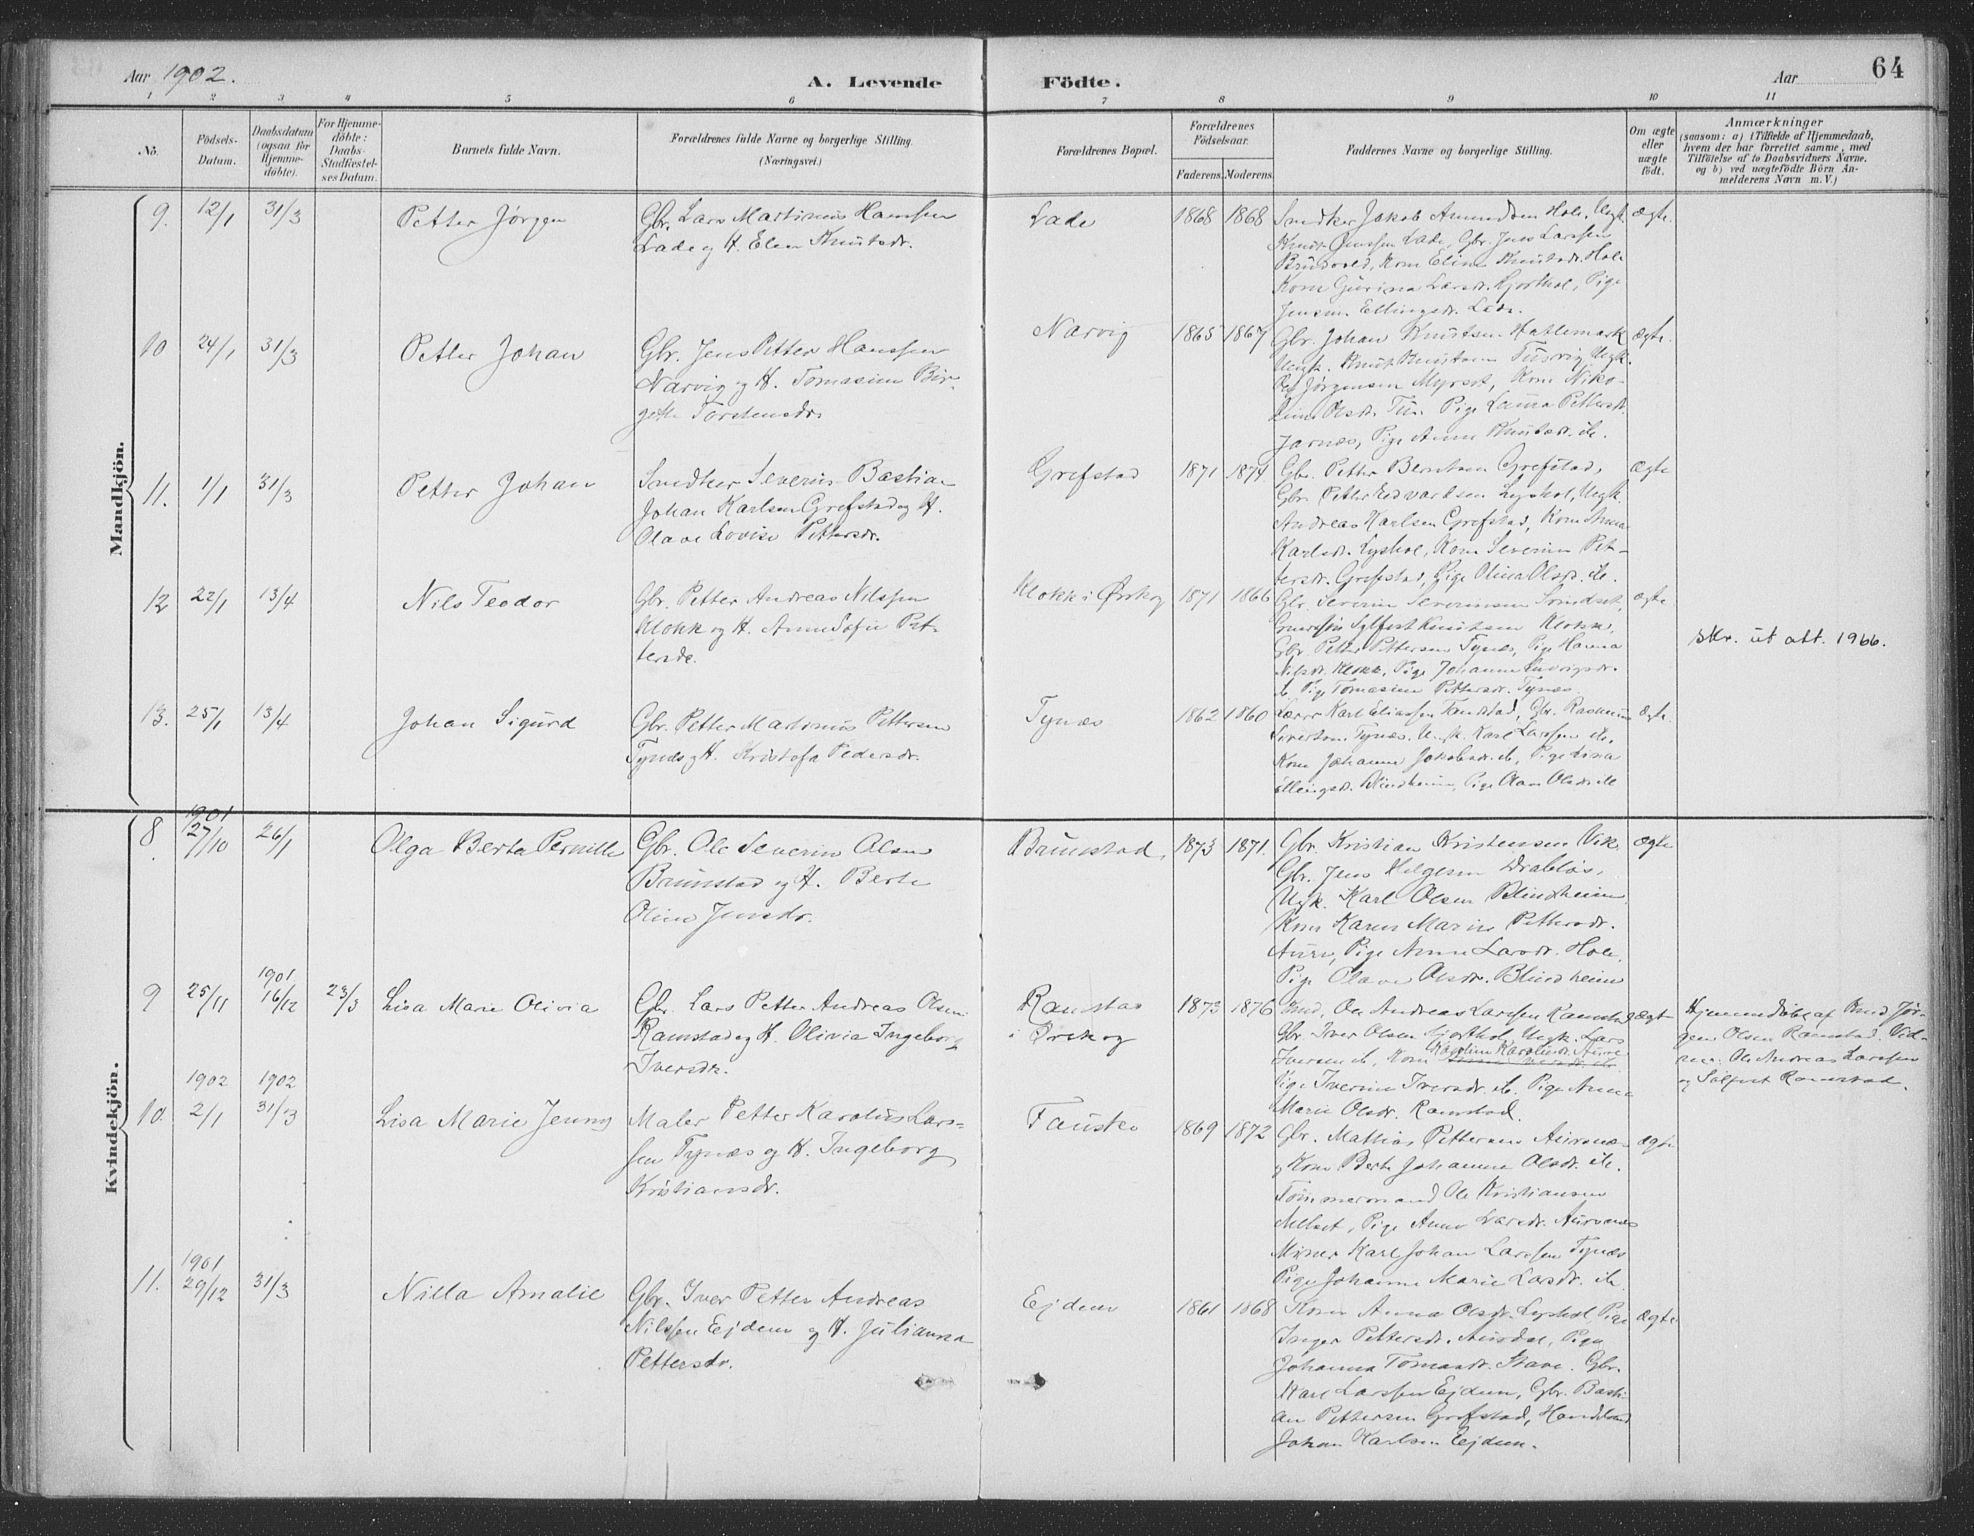 Aar 1902.
A. Levende Födte.
Aar
64
1 2 3 4 5 6 7 8 9 10 11
No.
Födsels-Datum.
Daabsdatum (ogsaa for Hjemme-döbte).
For Hjemme-döbte: Daabs-Stadfæstel-ses Datum.
Barnets fulde Navn.
Forældrenes fulde Navne og borgerlige Stilling. (Næringsvei.)
Forældrenes Bopæl.
Forældrenes Födselsaar.
Faderens. Moderens.
Faddernes Navne og borgerlige Stilling.
Om ægte eller uægte födt.
Anmærkninger
(saasom: a) i Tilfælde af Hjemmedaab,
hvem der har forrettet samme, med
Tilföielse af to Daabsvidners Navne,
og b) ved uægtefödte Börn An-
melderens Navn m. V.)
Mandkjön.
9. 12/1 31/3 Petter Jörgen
Gbr. Lars Martinus Hanssen
Lade og H. Elen Knutsdr.
Lade 1868 1868
Jakob Amundsen Hole, Ungk.
Knut Lade, Gbr. Jens Larssen
Brudevold, Kone Eline Knutsdr. Hole
Kone Gurina Larsdr. Gjorthol, Pige
Ellingsdr. Lade.
ægte.
10 24/1 31/3 Petter Johan
Gbr. Jens Petter Hanssen
Narvig og H. Tomasine Bir-
gitte Torstensdr.
Narvig 1865 1867
Gbr. Johan Knutsen Hatlemark
Ungk. Knut Knutsen Tusvig, Ungk.
Jörgensen Myrset, Kone Niko-
line Olsdr. Tu. Pige Laura Pettersdr.
Jarnæs, Pige Anne Knutsdr. ib.
ægte.
11. 1/1 31/3 Petter Johan
Smedker Severin Bastian
Johan Karlsen Grefstad og H.
Olave Lovise Pettersdr.
Grefstad 1871 1874
Gbr. Petter Berntsen Grefstad,
Gbr. Petter Edvardsen Lyshol, Ungk.
Andreas Karlsen Grefstad, Kone Anna
Karlsdr. Lyshol, Kone Severine Pet-
tersdr. Grefstad, Pige Olina Olsdr. ib.
ægte
12 22/1 13/4 Nils Teodor
Gbr. Petter Andreas Nilssen
Klokk og H. Anne Sofie Pet-
tersdr.
Klokk i Ørskog 1871 1866
Gbr. Severin Severinsen
Sylfest Knutsen Klokk,
Gbr. Petter Pettersen Tynæs, Pige Hanna
Nilsdr. Klokk, Pige Johanne Ludvigsdr.
ib. Pige Tomasine Pettersdr. Tynæs.
ægte
skr. ut att. 1966.
13. 25/1 13/4 Johan Sigurd
Gbr. Petter Martinus Pettersen
Tynæs og H. Kristofa Pedersdr.
Tynæs 1862 1860
Lærer Karl Eliassen Tandstad, Gbr. Rasmus
Sivertsen Tynæs, Ungk. Karl Larssen ib.
Kone Johanne Jakobsdr. ib, Pige Lina
Ellingsdr. Blindheim, Pige Olsdr. ib
ægte.
Kvindekjön.
8. 1901 27/10 26/1 Olga Berta Pernille
Gbr. Ole Severin Olsen
Brunstad og H. Berte
Oline Jensdr.
Brunstad, 1873 1871.
Gbr. Kristian Kristensen Vik.
Gbr. Jens Helgesen Drabløs,
Ungk. Karl Olsen Blindheim,
Kone Karen Marie Pettersdr.
Aure, Pige Anne Larsdr. Hole,
Pige Olave Olsdr. Blindheim
ægte
9 25/11 1901 16/12 23/3 Lisa Marie Olivia
Gbr. Lars Petter Andreas Olsen
Ramstad og H. Olivia Ingeborg
Iversdr.
Ramstad i Ørskog 1873 1876
Gmd. Ole Andreas Larssen Ramstad
Gbr. Iver Olsen Gjorthol, Ungk. Lars
Iversen ib, Kone Karoline Karolusdr. Aure
Pige Iverine Iversdr. ib. Pige Anne
Marie Olsdr. Ramstad.
ægte
Hjemmedöbt af Gmd. Jör-
gen Olsen Ramstad. Vid-
ner: Ole Andreas Larssen
og Sylfest Ramstad.
10. 1902 2/1 1902 31/3 Lisa Marie Jenny
Maler Petter Karolus Lars-
sen Tynæs og H. Ingeborg
Kristiansdr.
Fauske 1869 1872
Gbr. Mathias Pettersen Aursnæs
og Kone Berte Johanne Olsdr. ib.
Tömmermand Ole Kristiansen
Melset, Pige Anne Larsdr. Aursnæs
Murer Karl Johan Larssen Tynæs
Pige Johanne Marie Larsdr. ib.
ægte
11. 1901 29/12 31/3 Nilla Amalie
Gbr. Iver Petter Andreas
Nilssen Ejdem og H. Julianna
Pettersdr.
Ejdem 1861 1868
Kone Anna Olsdr. Lyshol, Pige
Inger Pettersdr. Aursdal, Pige
Johanna Tomasdr. Stave. Gbr.
Karl Larssen Ejdem, Gbr. Basti-
an Pettersen Grefstad, Handelsmd
Johan Karlsen Ejdem.
ægte